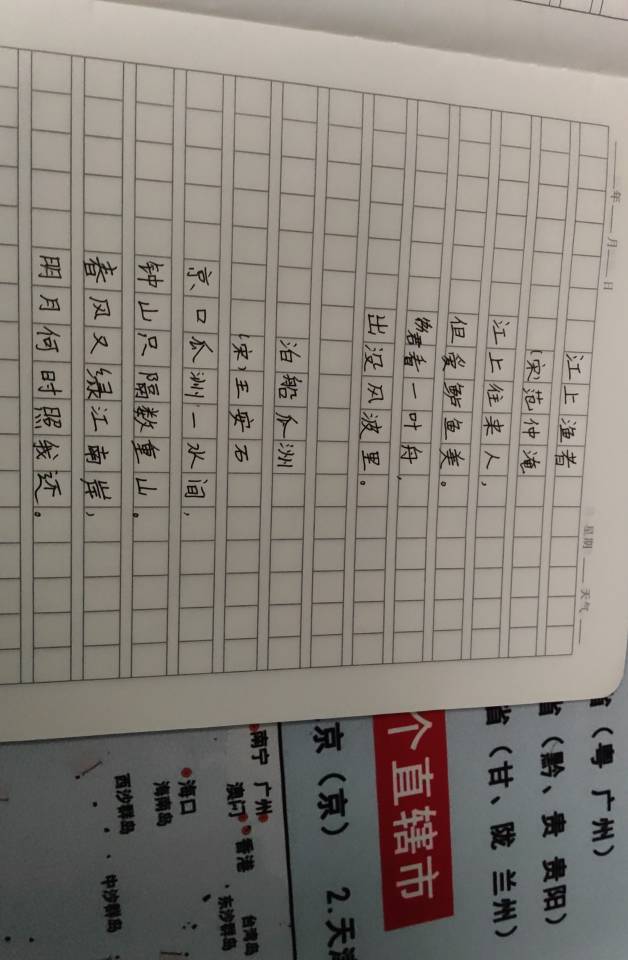 年 月 日 星期 天气
江上渔者
(宋)范仲淹
江上往来人，
但爱鲈鱼美。
君看一叶舟，
出没风波里。
泊船瓜洲
(宋)王安石
京口瓜洲一水间，
钟山只隔数重山。
春风又绿江南岸，
明月何时照我还。
省(粤 广州)
省(黔、贵 贵阳)
省(甘、陇 兰州)
个直辖市
京(京) 2.天
南宁 广州
澳门 香港
台湾岛
东沙群岛
海口
海南岛
西沙群岛
中沙群岛